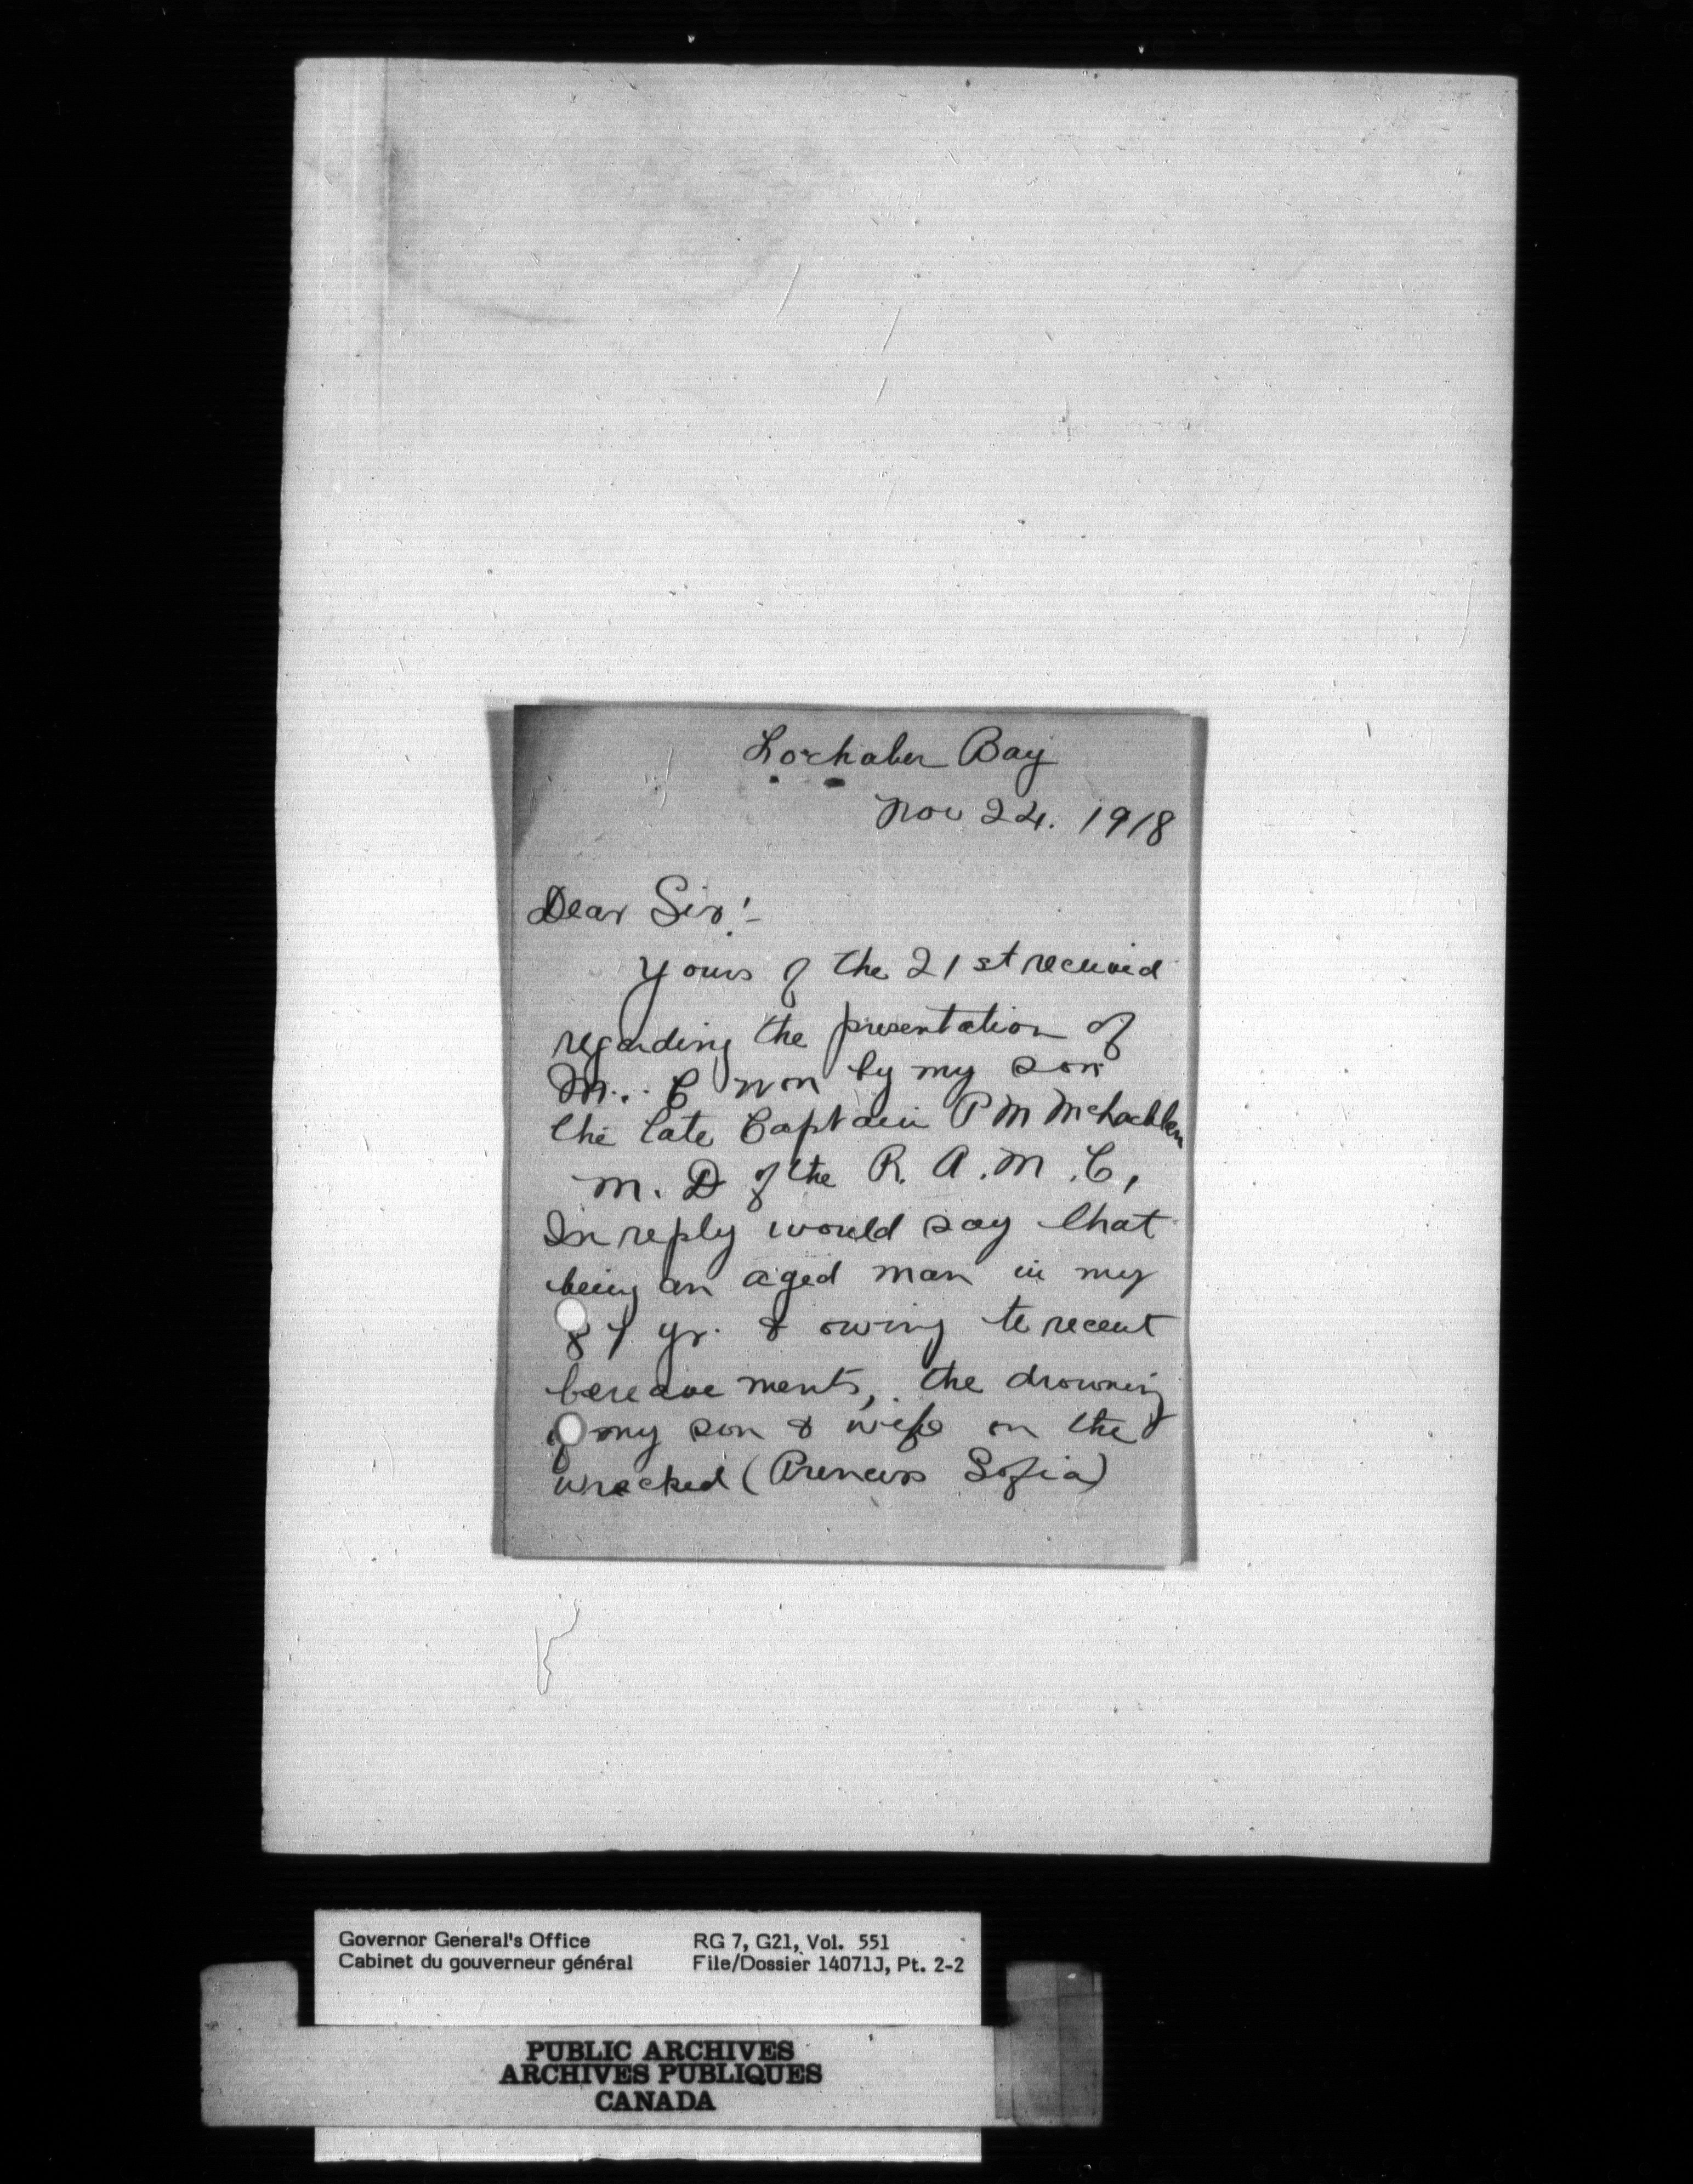 Lochaber Bay
Nov 24. 1918
Dear Sir:-
Yours of the 21st received
regarding the presentation of
M.. C won by my son
the late Captain P M McLachlen
M. D of the R. A. M. C,
In reply would say that
being an aged man in my
yr. & owing to recent
bereavements, the drowning
of my son & wife on the
wrecked (Princess Sofia)
Governor General's Office RG 7, G21, Vol. 551
Cabinet du gouverneur général File/Dossier 14071J, Pt. 2-2
PUBLIC ARCHIVES
ARCHIVES PUBLIQUES
CANADA